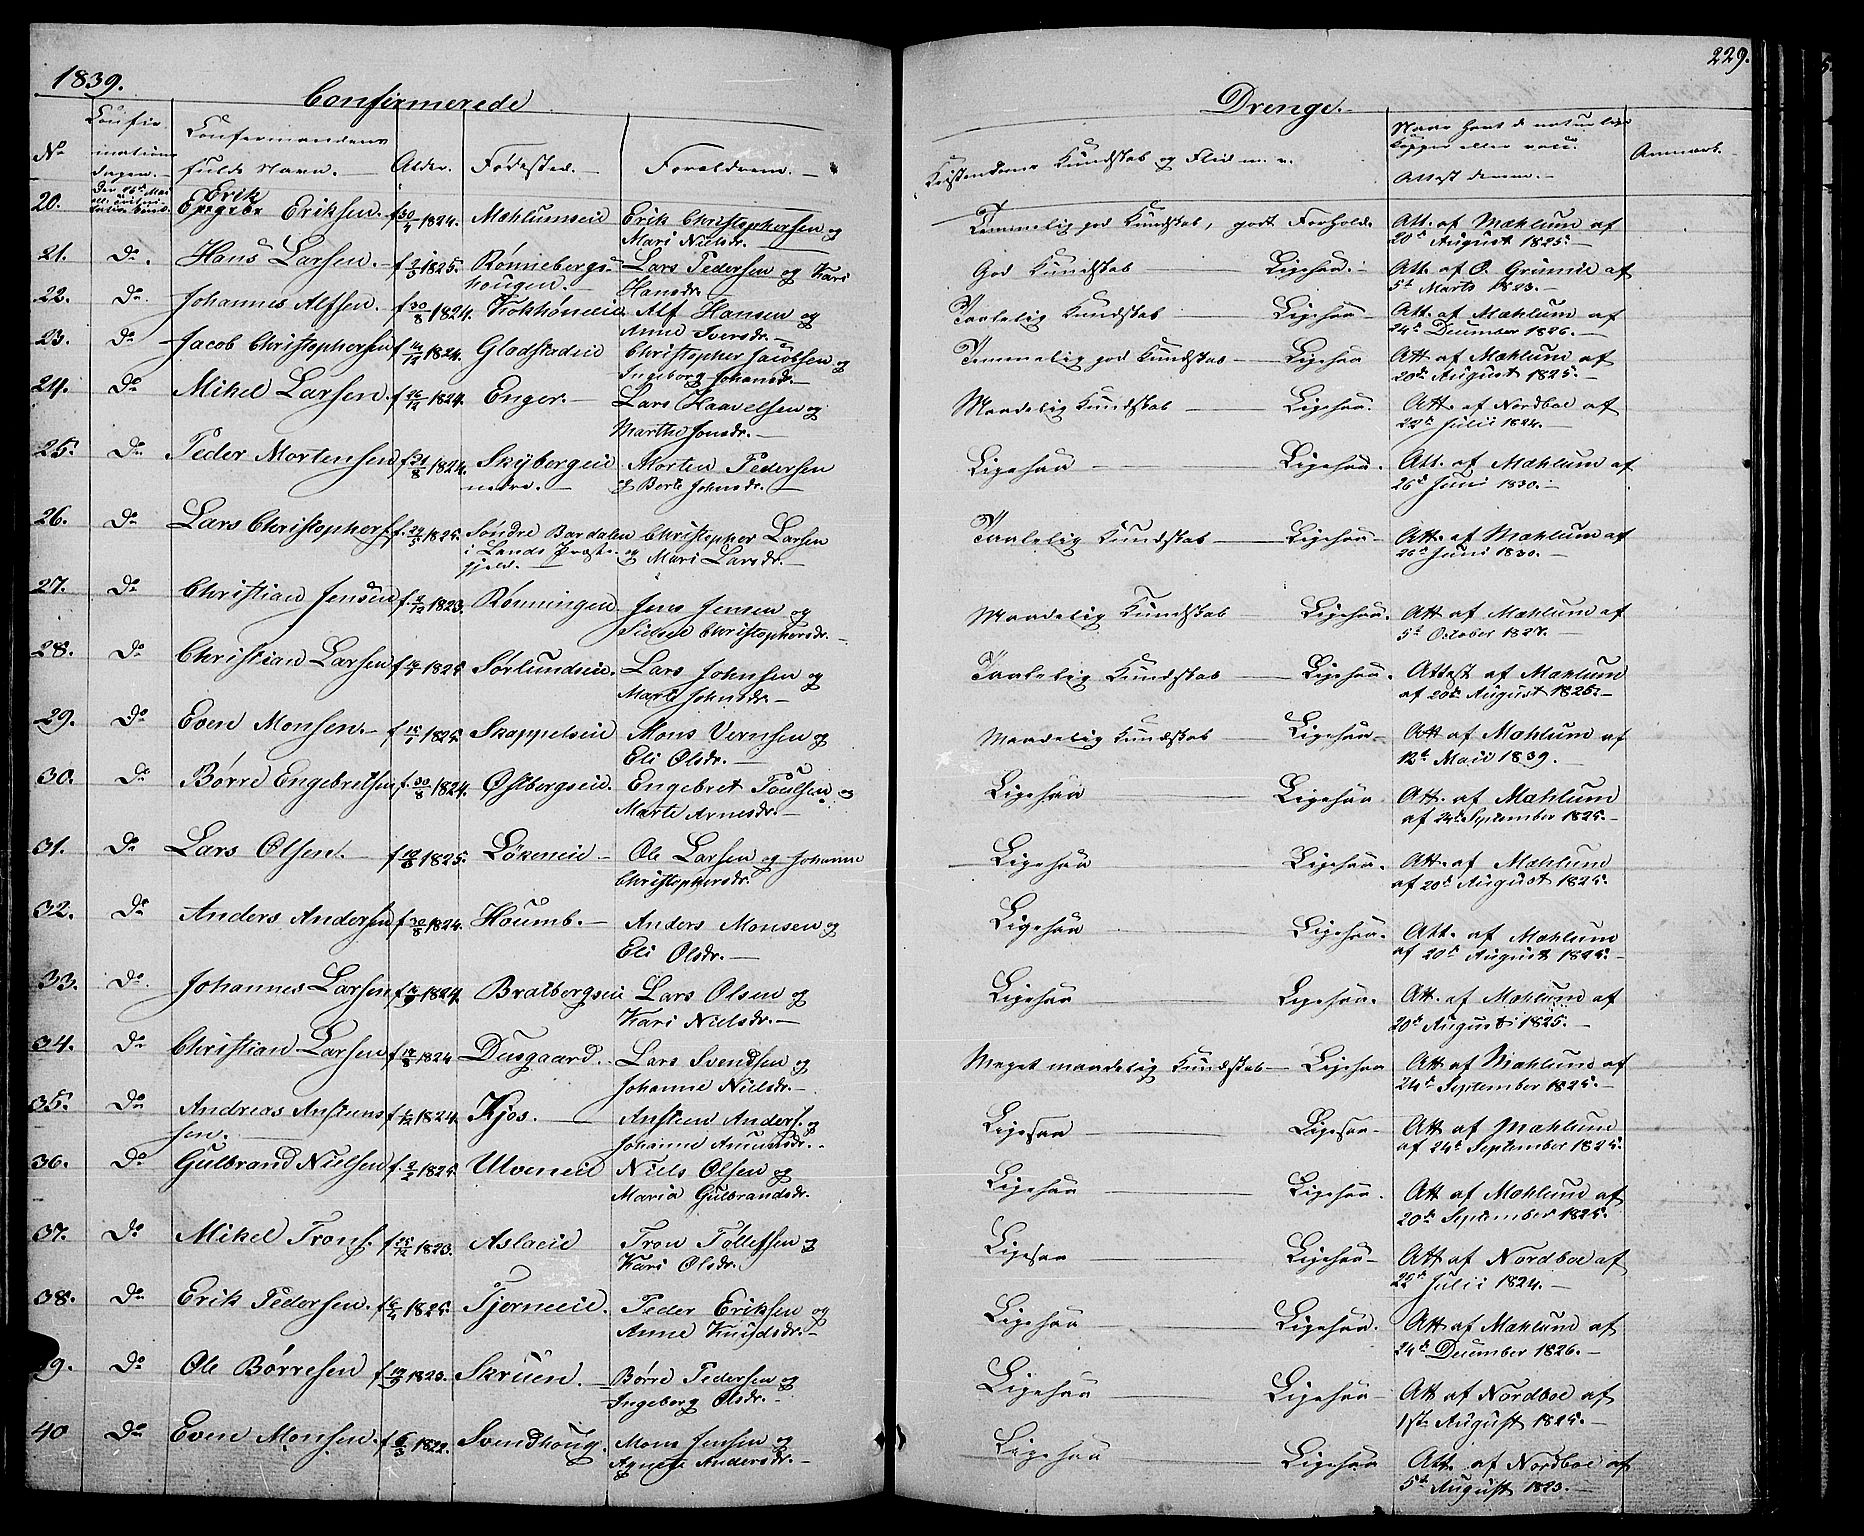 1839.
Confirmerede
Drenge.
229.
No
Confir
mations
Dagen.
Confirmandens
fulde Navn.
Alder.
Fødested.
Forældrene.
Kristendoms Kundskab og Flid m. v.
Naar havt de naturlige
Kopper eller vacc.
Attest derom.
Anmærk.
20. Erik Eriksen. f 1824. Mæhlumseie Erik Christophersen og
Mari Nielsdr. Temmelig god Kundskab, godt Forhold. Att. af Mæhlum af
20de August 1825.
21. Do. Hans Larsen. f 1825. Rønnebergs- Lars Pedersen og Kari
hougen. Hansdr. God Kundskab Ligesaa. Att. af O. Grünii af
5te Marts 1823.
22. Do. Johannes Alfsen. f 30/8 1824. Kokhøneie Alf Hansen og
Anne Iversdr. Taalelig Kundskab Ligesaa Att. af Mæhlum af
24de December 1826.
23. Do Jacob Christophersen f 1824. Gladstadeie Christopher Jacobsen og
Ingeborg Johansdr. Temmelig god Kundskab Ligesaa Att. af Mæhlum af
20de August 1825.
24. Do Mikel Larsen. f 1824. Enger. Lars Haavelsen og
Marthe Jonsdr. Maadelig Kundskab Ligesaa. Att. af Nordboe af
22de Julii 1824.
25. Do Peder Mortensen f 1824. Skybergeie Morten Pedersen
nedre. og Berte Johnsdr. Ligesaa Ligesaa. Att. af Mæhlum af
26de Juni 1830.
26. Do Lars Christophers. f. 1825. Søndre Bardalen Christopher Larsen
i Lands Præste- og Mari Larsdr.
gjeld. Taalelig Kundskab Ligesaa Att. af Mæhlum af
26de Juni 1830.
27. Do Christian Jensen f. 1823. Rønningen Jens Jensen og
Christophersdr. Maadelig Kundskab Ligesaa. Att. af Mæhlum af
5te October 1827.
28. Do Christian Larsen f 1825 Sørlundseie. Lars Johnsen og
Marte Johnsdr. Taalelig Kundskab Ligesaa. Attest af Mæhlum
af 20de August 1825.
29. Do Even Monsen. f 1825. Skappelseie Mons Evensen og
Eli Olsdr. Maadelig Kundskab Ligesaa Att. af Mæhlum af
12te Maii 1839.
30. Do Børre Engebretsen f. 30/8 1824. Østbergseie. Engebret Poulsen og
Marte Arnesdr. Ligesaa Ligesaa Att. af Mæhlum
af 24de September 1825.
31. Do Lars Olsen. f 1825. Løkeneie Ole Larsen og Johanne
Christophersdr. Ligesaa Ligesaa. Att. af Mæhlum
af 20de August 1825.
32. Do Anders Andersen f 30/8 1824. Houmb. Anders Monsen og
Eli Olsdr. Ligesaa Ligesaa. Att. af Mæhlum
af 20de August 1825.
33. Do. Johannes Larsen f 1824. Bratbergseie Lars Olsen og
Kari Nielsdr. Ligesaa Ligesaa. Att. af Mæhlum af
20de August 1825.
34. Do Christian Larsen f 1824 Dusgaard. Lars Svendsen og
Johanne Nielsdr. Meget maadelig Kundskab Ligesaa Att. af Mæhlum af
24de September 1825.
35. Do Andreas Anstens f 1824. Kjos. Ansten Anders. og
sen. Johanne Amundsdr. Ligesaa Ligesaa Att af Mæhlum
af 24de September 1825.
36. Do Gulbrand Nielsen f. 2/2 1825. Ulveneie Niels Olsen og
Maria Gulbrandsdr. Ligesaa Ligesaa. Att af Mæhlum af
20de September 1825.
37. Do Mikel Trons. f 1823. Aslaeie Tron Tollefsen og
Kari Olsdr. Ligesaa Ligesaa Att. af Nordboe af
22de Julii 1824.
38. Do Erik Pedersen. f 1825. Tjerneeie. Peder Eriksen og
Anne Knudsdr. Ligesaa Ligesaa. Att af Mæhlum af
24de December 1826.
39. Do Ole Børresen f 1823. Skruen. Børre Pedersen og
Ingeborg Olsdr. Ligesaa Ligesaa Att af Nordboe af
1ste August 1825.
40 Do Even Monsen. f 6/3 1822. Svendhoug. Mons Jensen og
Agnete Andersdr. Ligesaa Ligesaa Att. af Nordboe af
5te August 1823.